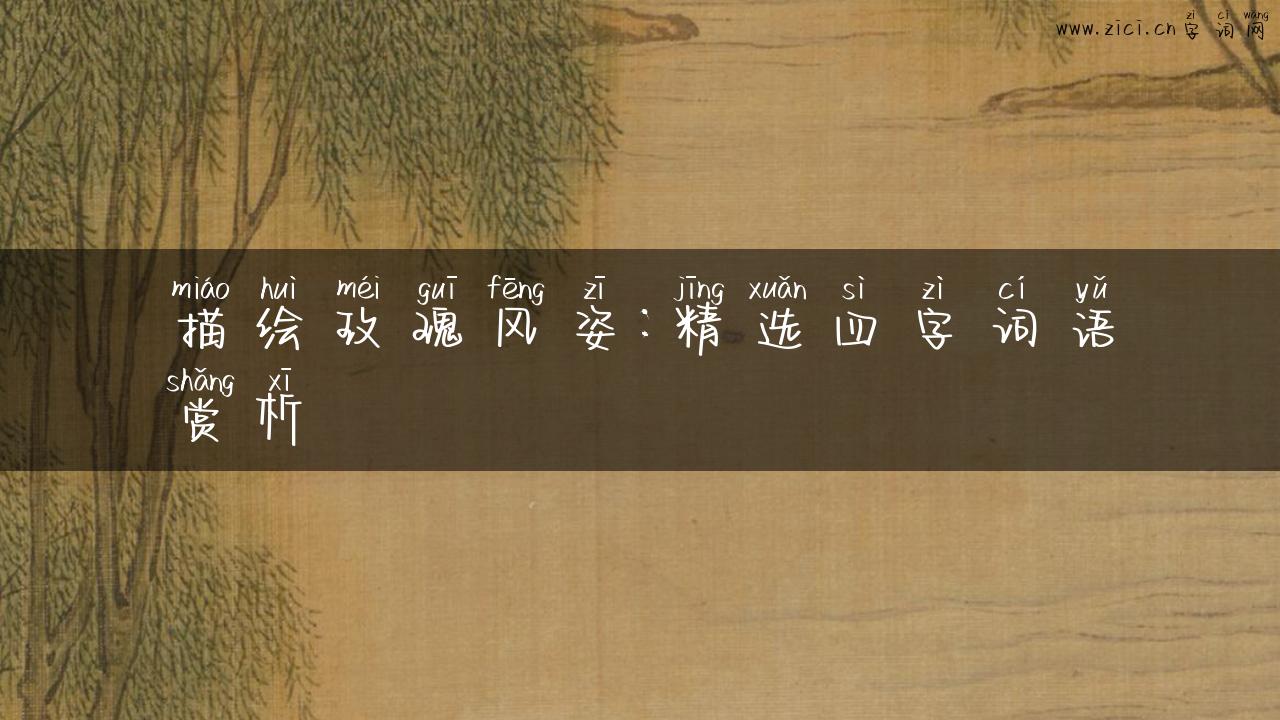 zì cí wǎng
www.zici.cn字词网
miáo huì méi guī fēng zī jīng xuǎn sì zì cí yǔ
描绘玫瑰风姿:精选四字词语
shǎng xī
赏析